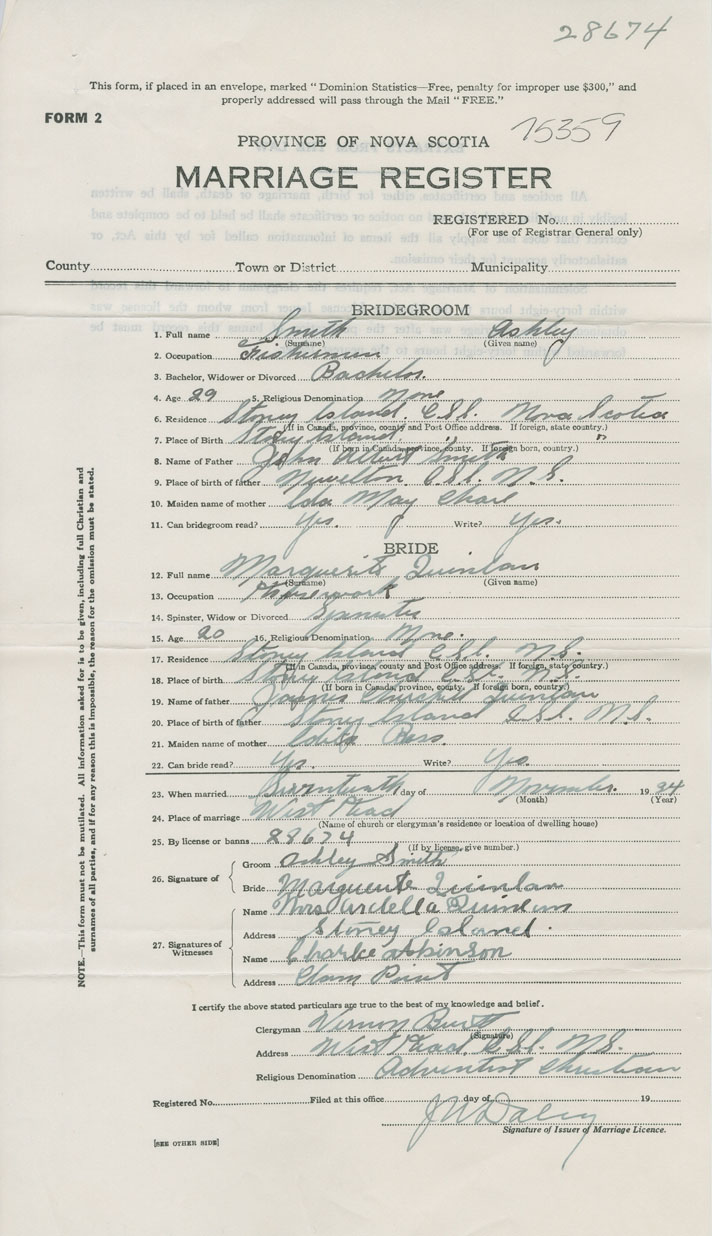 28674
This form, if placed in an envelope, marked "Dominion Statistics—Free, penalty for improper use $300," and
properly addressed will pass through the Mail "FREE."
FORM 2
15359
PROVINCE OF NOVA SCOTIA
MARRIAGE REGISTER
REGISTERED No.
(For use of Registrar General only)
County Town or District Municipality
BRIDEGROOM
1. Full name Smith Ashley
(Surname) (Given name)
2. Occupation Fisherman
3. Bachelor, Widower or Divorced Bachelor.
4. Age 29 5. Religious Denomination None
6. Residence Stoney Island, C.S.I. Nova Scotia
(If in Canada, province, county and Post Office address. If foreign, state country.)
7. Place of Birth Stoney Island, " "
(If born in Canada, province, county. If foreign born, country.)
8. Name of Father John Albert Smith
9. Place of birth of father Newellton C.S.I. N.S.
10. Maiden name of mother Ida May
11. Can bridegroom read? Yes. Write? Yes.
BRIDE
12. Full name Marguerite Quinlan
(Surname) (Given name)
13. Occupation Housework
14. Spinster, Widow or Divorced Spinster
15. Age 20 16. Religious Denomination None.
17. Residence Stoney Island C.S.I. N.S.
(If in Canada, province, county and Post Office address. If foreign, state country.)
18. Place of birth Stoney Island C.S.I. N.S.
(If born in Canada, province, county. If foreign born, country.)
19. Name of father James Churchill Quinlan
20. Place of birth of father Stoney Island C.S.I. N.S.
21. Maiden name of mother Ross.
22. Can bride read? Yes. Write? Yes.
23. When married Seventeenth day of November 1934
(Month) (Year)
24. Place of marriage West Head
(Name of church or clergyman's residence or location of dwelling house)
25. By license or banns 28674
(If by license, give number.)
26. Signature of
Groom Ashley Smith
Bride Marguerite Quinlan
27. Signatures of Witnesses
Name Mrs Ardella Quinlan
Address Stoney Island.
Name Charlie Atkinson
Address Clam Point
I certify the above stated particulars are true to the best of my knowledge and belief.
Clergyman Vernon
(Signature)
Address West Head, C.S.I. N.S.
Religious Denomination Adventist Christian
Registered No. Filed at this office day of 19
Daley
Signature of Issuer of Marriage Licence.
[SEE OTHER SIDE]
NOTE.—This form must not be mutilated. All information asked for is to be given, including full Christian and
surnames of all parties, and if for any reason this is impossible, the reason for the omission must be stated.